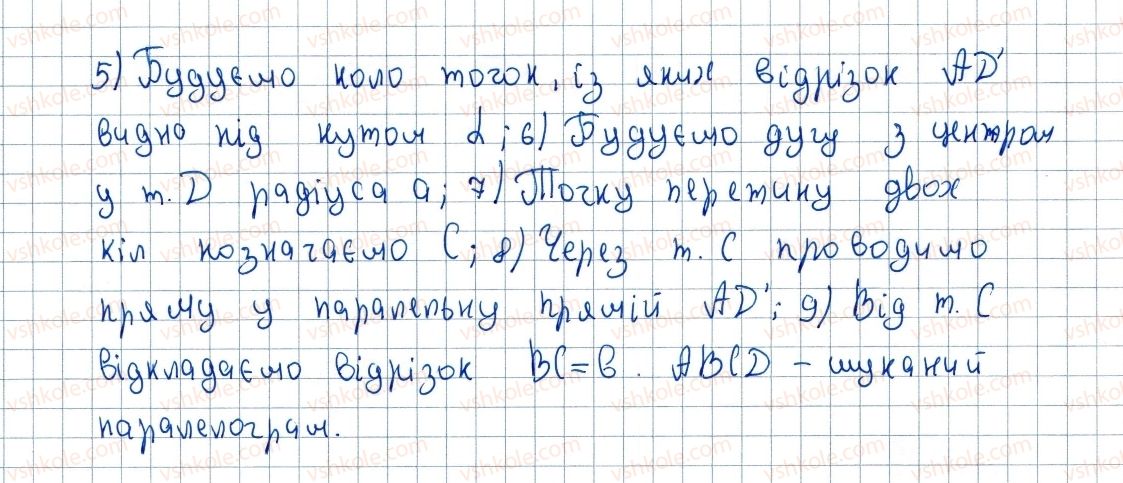 5) Будуємо коло точок, із яких відрізок AD'
видно під кутом α; 6) Будуємо дугу з центром
у т. D радіуса a; 7) Точку перетину двох
кіл позначаємо C; 8) Через т. C проводимо
пряму y паралельну прямій AD'; 9) Від т. C
відкладаємо відрізок BC = b. ABCD – шуканий
паралелограм.